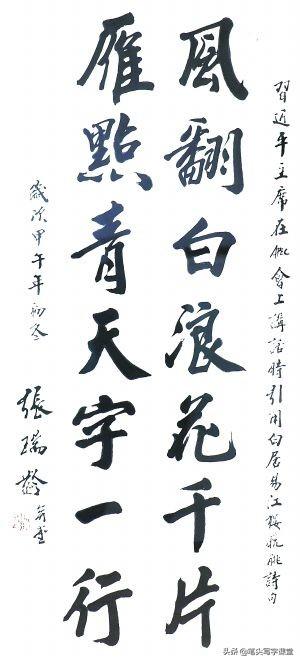 習近平主席在會上講話時引用白居易江樓晚眺詩句
風翻白浪花千片
雁點青天字一行
歲次甲午年初冬
張瑞齡
头条 @笔头写字课堂